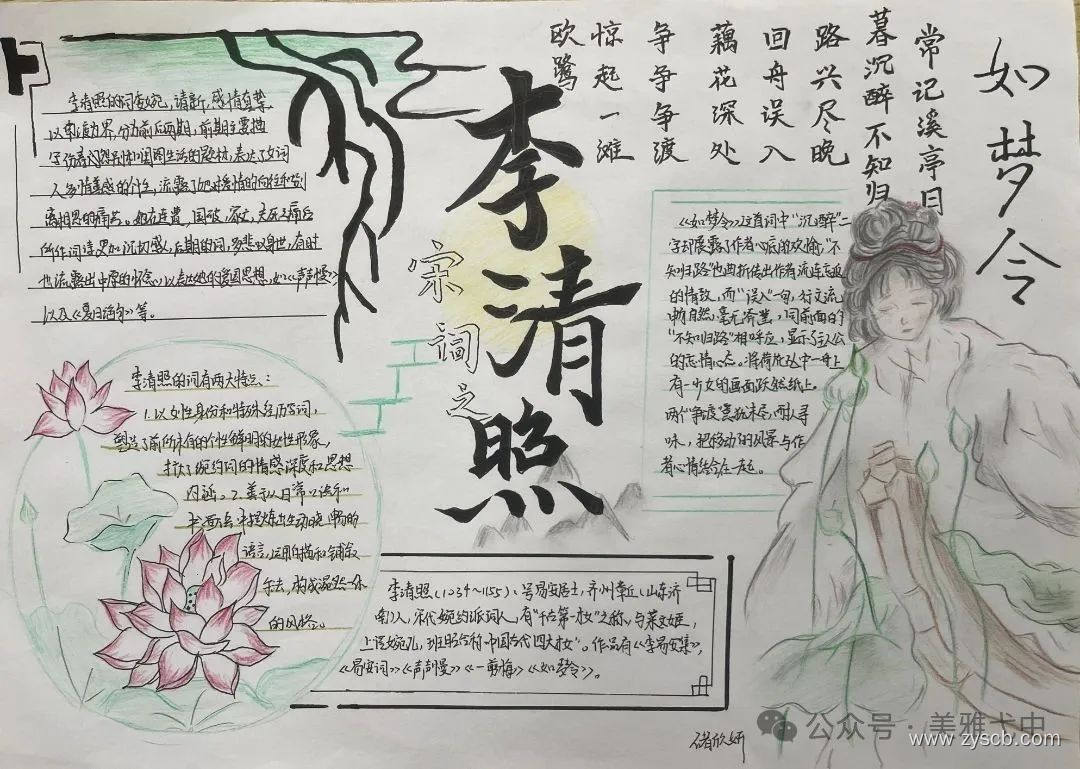 如梦令
常记溪亭日
暮沉醉不知归
路兴尽晚
回舟误入
藕花深处
争争争渡
惊起一滩
欧鹭
宋词之
李清照
李清照的词委婉,清新,感情真挚
以南渡为界,分为前后两期,前期主要描
写伤春怨别和闺阁生活的题材,表达了女词
人多情善感的个性,流露了她对爱情的向往和
离相思的痛苦。
所作词变 沉切感,后期的词,多悲叹身世,有时
也流露出中原的怀念以表达她的爱国思想,如《声声慢》
以及 等。
李清照的词有两大特点:
1.以女性身份和特殊经历写词,
塑造了前所未有的个性鲜明的女性形象,
扩大了婉约词的情感深度和思想
内涵。2.善于从日常口语和
书面 提炼出生动晓畅的
语言,运用白描和铺叙
手法,构成浑然一体
的风格。
《如梦令》这首词中“沉醉”二
字却展露了作者心底的欢愉,“不
知归路”也曲折传出作者流连忘返
的情致,而“误入”一句,行文流
畅自然,毫无 ,同前面的
“不知归路”相呼应,显示了主人公
的忘情心态。将荷花丛中一舟上
有一少女的画面跃然纸上。
两个“争渡”意犹未尽,耐人寻
味,把移动的风景与作
者心情结合在一起。
李清照(1234~1155)、号易安居士,齐州章丘(山东济
南)人,宋代婉约派词人,有“千古第一才女”之称,与蔡文姬,
上官婉儿,班昭合称“中国古代四大才女”。作品有《李易安集》,
《易安词》《声声慢》《一剪梅》《如梦令》。
储欣妍
公众号·美雅弋中
www.zyscb.com